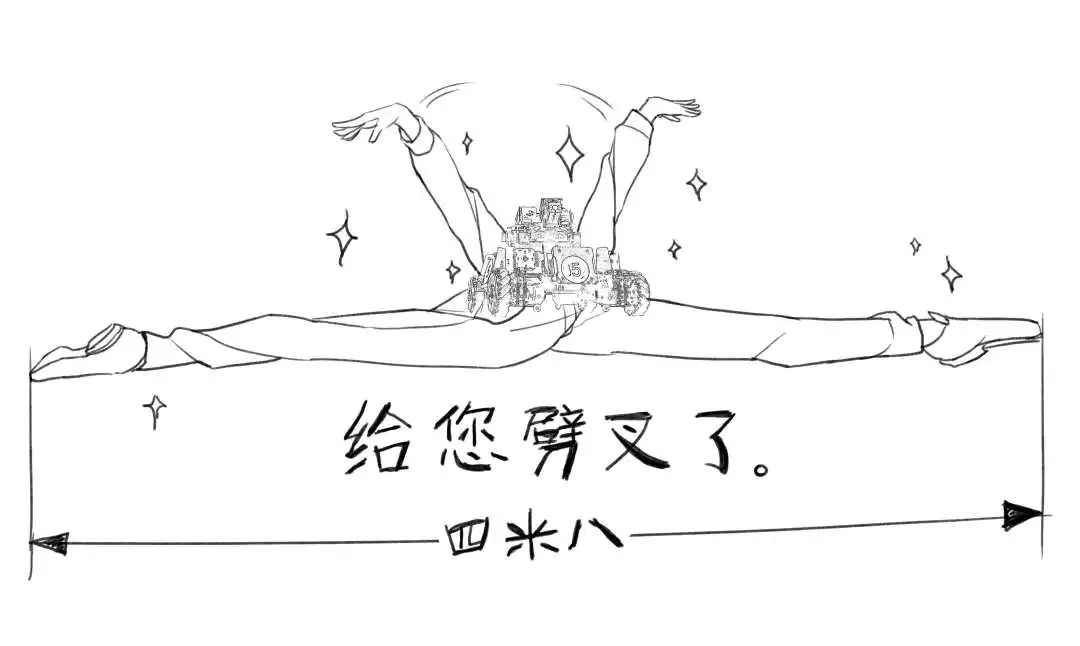 15
给您劈叉了。
四米八